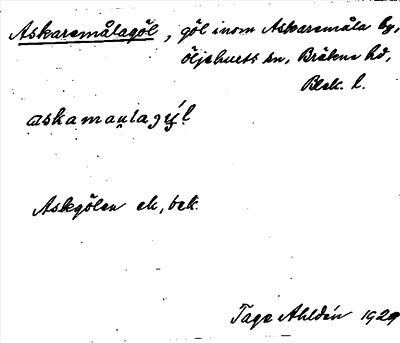 Askaremålagöl, göl inom Askaremåla by,
Öljehults sn, Bräkne hd,
Blek. l.
askamaulagýl
Askgölen ek, bek.
Tage Ahldén 1929